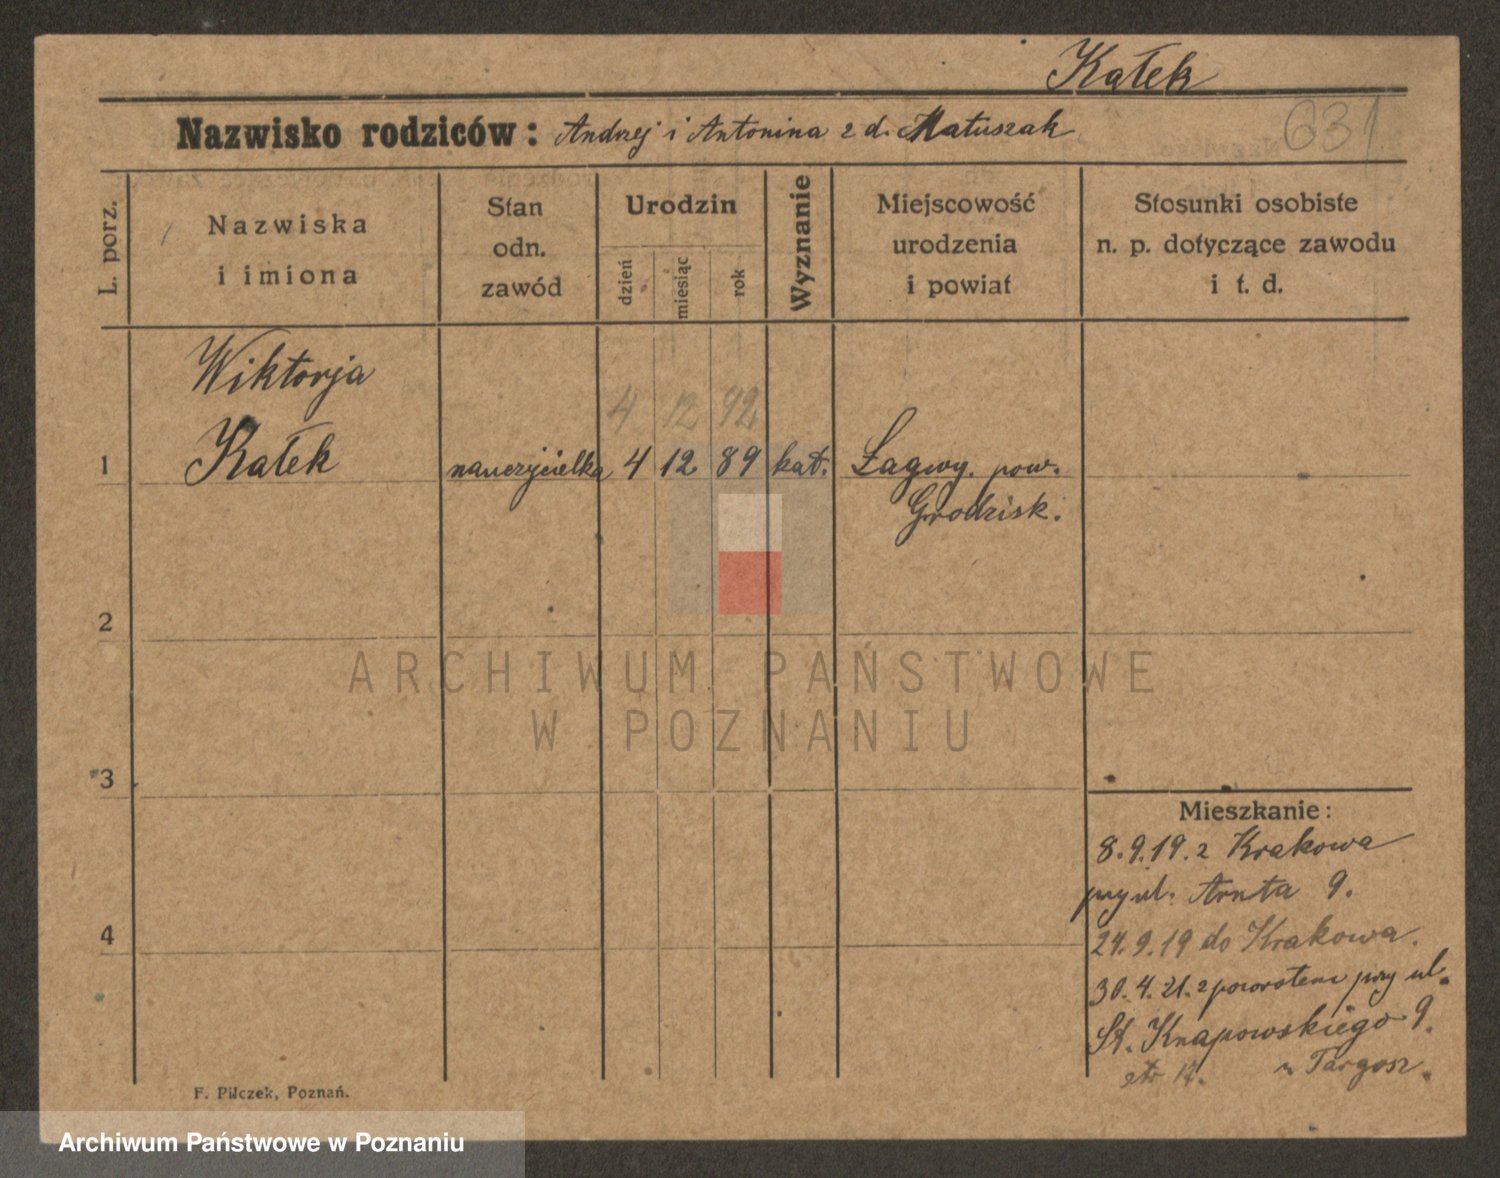 Kałek
Nazwisko rodziców: Andrzej i Antonina z d. Matuszak
631
L. porz.
Nazwiska
i imiona
Stan
odn.
zawód
Urodzin
dzień
miesiąc
rok
Wyznanie
Miejscowość
urodzenia
i powiat
Stosunki osobiste
n. p. dotyczące zawodu
i t. d.
Wiktorja
4 12 92
1 Kałek nauczycielka 4 12 89 kat. Łagwy. pow.
Grodzisk.
2
ARCHIWUM PAŃSTWOWE
W POZNANIU
3
Mieszkanie:
8.9.19. z Krakowa
przy ul. Arnta 9.
4
24.9.19 do Krakowa.
30.4.21. z powrotem przy ul.
St. Knapowskiego 9.
u Targosz.
F. Pilczek, Poznań.
Archiwum Państwowe w Poznaniu